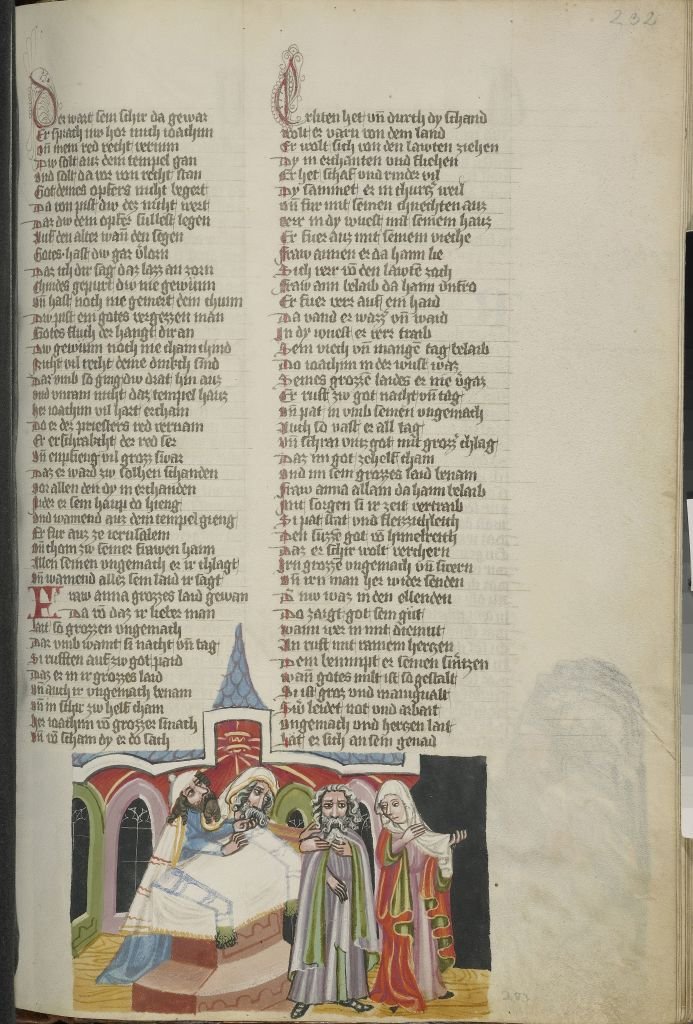 232
Der wart sein schir da gewar
Er sprach nw hor mich ioachim
Vn̄ mein red recht vernim
Dw solt aus dem tempel gan
Vnd solt da vor von recht stan
Got deines opfers nicht begert
Da von pist dw des nicht wert
Daz dw dein opfer sullest legen
Auf den alter wan̄ den segen
Gotes hast dw gar
Daz ich dir sag daz lazz an zorn
Chindes gepurt dw nie gewun
Vn̄ hast noch nie gemert dein chunn
Dw pist ein gotes vergezzen man
Gotes fluch der hangt dir an
Dw gewun noch nie cham chind
Nicht vil recht deine dinch sind
Dar vmb so ging dw drat hin aus
Vnd vnrain nicht daz tempel haus
her ioachim vil hart ercham
Do er des priesters red vernam
Er erschrakcht der red ser
Vn̄ enpfieng vil gross swar
Daz er ward zw solhen schanden
Vor allen den dy in erchanden
Nider er sein haupt do hieng
Vnd wainend aus dem tempel gieng
Er fur aus ze ierusalem
Vn̄ chom zw seiner frawen haim
Allen seinen vngemach er ir chlagt
Vn̄ wainend alles sein laid ir sagt
Fraw anna grozzes laid gewan
Da vō daz ir lieber man
lait so grozzen vngemach
Dar vmb waint si nacht vn̄ tag
Si rufften auf zw got paid
Daz er in ir grozzes laid
Vn̄ auch ir vngemach benam
Vn̄ in schir zw helf cham
her ioachim vō grozzer smach
Vn̄ vō scham dy er do sach
Erliten het vn̄ durch dy schand
Wolt er varn von dem land
Er wolt sich von den lawten ziehen
Dy in erchanten vnd fliehen
Er het schaf vnd rinder vil
Dy sammet er in churzer weil
Vn̄ fur mit seinen chnechten aus
verr in dy wuest mit seinem haus
Er fuer aus mit seinem vieche
Fraw annen er da haim lie
Sich verr vō den lawten zoch
Fraw ann belaib da haim
Er fuer verr auf ein haid
Da vand er vn̄ waid
In dy wuest er verr traib
Sein viech vn̄ mange tag belaib
Do ioachim in der wust was
Seines grozze laides er nie
Er ruft zw got nacht vn̄ tag
Vn̄ pat in vmb seinen vngemach
Auch so vast er all tag
Vn̄ schrai vntz got mit gross chlag
Daz im got ze helf cham
Vnd im sein grozzes laid benam
Fraw anna allain da haim belaib
Mit sorgen si ir zeit vertraib
Si pat stat vnd fleizzichleich
Den suzze got vō himelreich
Daz er schir wolt vercheren
Irn grozze vngemach vn̄
Vn̄ irn man her wider senden
Der nw was in den ellenden
Do zaigt got sein gut
Wann wer in mit diemut
An ruft mit rainem herzen
Dem benimpt er seinen smerzen
Wan̄ gotes milt ist so gestalt
Si ist gros vnd manigualt
Swer leidet not vnd arbait
Vngemach vnd herzen lait
hat er sich an sein genad